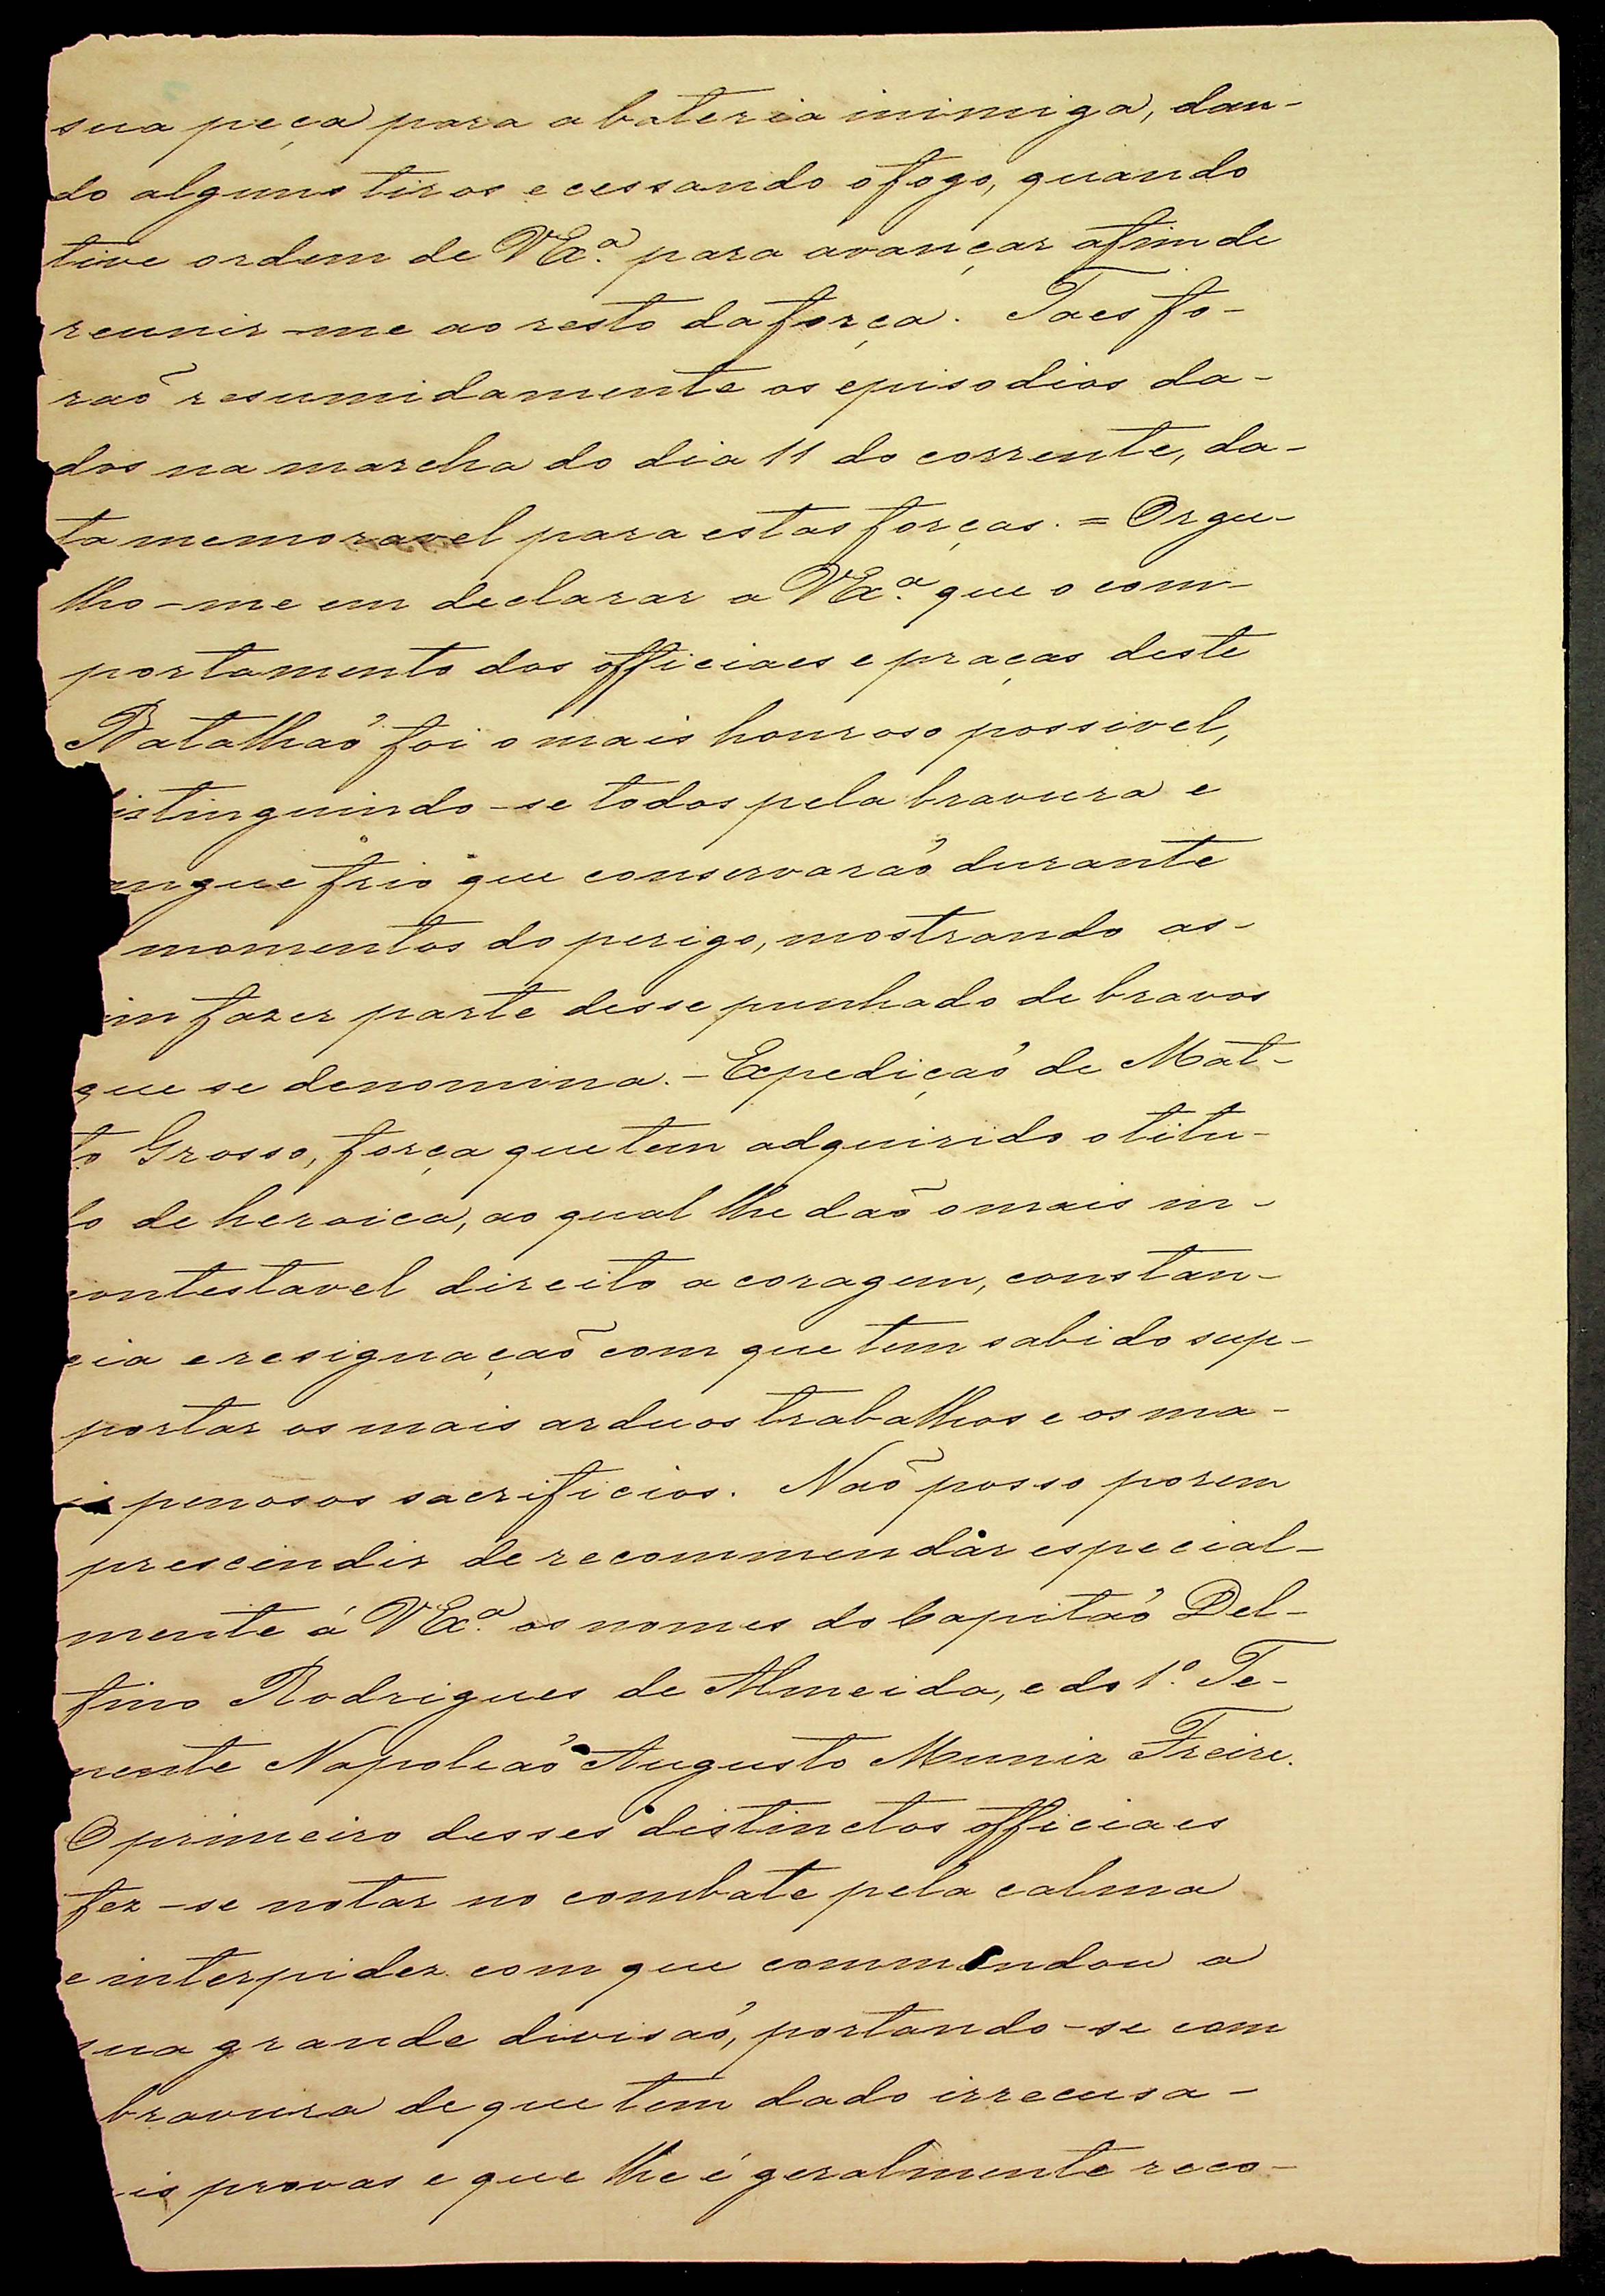 sua peça para a bateria inimiga, dan-
do alguns tiros e cessando o fogo, quando
tive ordem de VEx.ª para avançar afim de
reunir-me ao resto da força. Taes fo-
raõ resumidamente os episodios da-
dos na marcha do dia 11 do corrente, da-
ta memoravel para estas forças. = Orgu-
lho-me em declarar a VEx.ª que o com-
portamento dos officiaes e praças deste
Batalhaó foi o mais honroso possivel,
istinguindo-se todos pela bravura e
ngue frio que conservaraó durante
momentos do perigo, mostrando as-
im fazer parte desse punhado de bravos
que se denomina. - Expediçaó de Mat-
to Grosso, força que tem adquirido o titu-
lo de heroica, ao qual lhe daõ o mais in-
contestavel direito a coragem, constan-
cia e resignaçaõ com que tem sabido sup-
portar os mais arduos trabalhos e os ma-
is penosos sacrificios. Naõ posso porem
prescindir de recommendar especial-
mente á VEx.ª os nomes do Capitaó Del-
fino Rodrigues de Almeida, e do 1º. Te-
nente Napoleaó Augusto Muniz Freire.
O primeiro desses distinctos officiaes
fez-se notar no combate pela calma
e interpidez com que commandou a
sua grande divisaó, portando-se com
bravura de que tem dado irrecusa-
is provas e que lhe é geralmente reco-